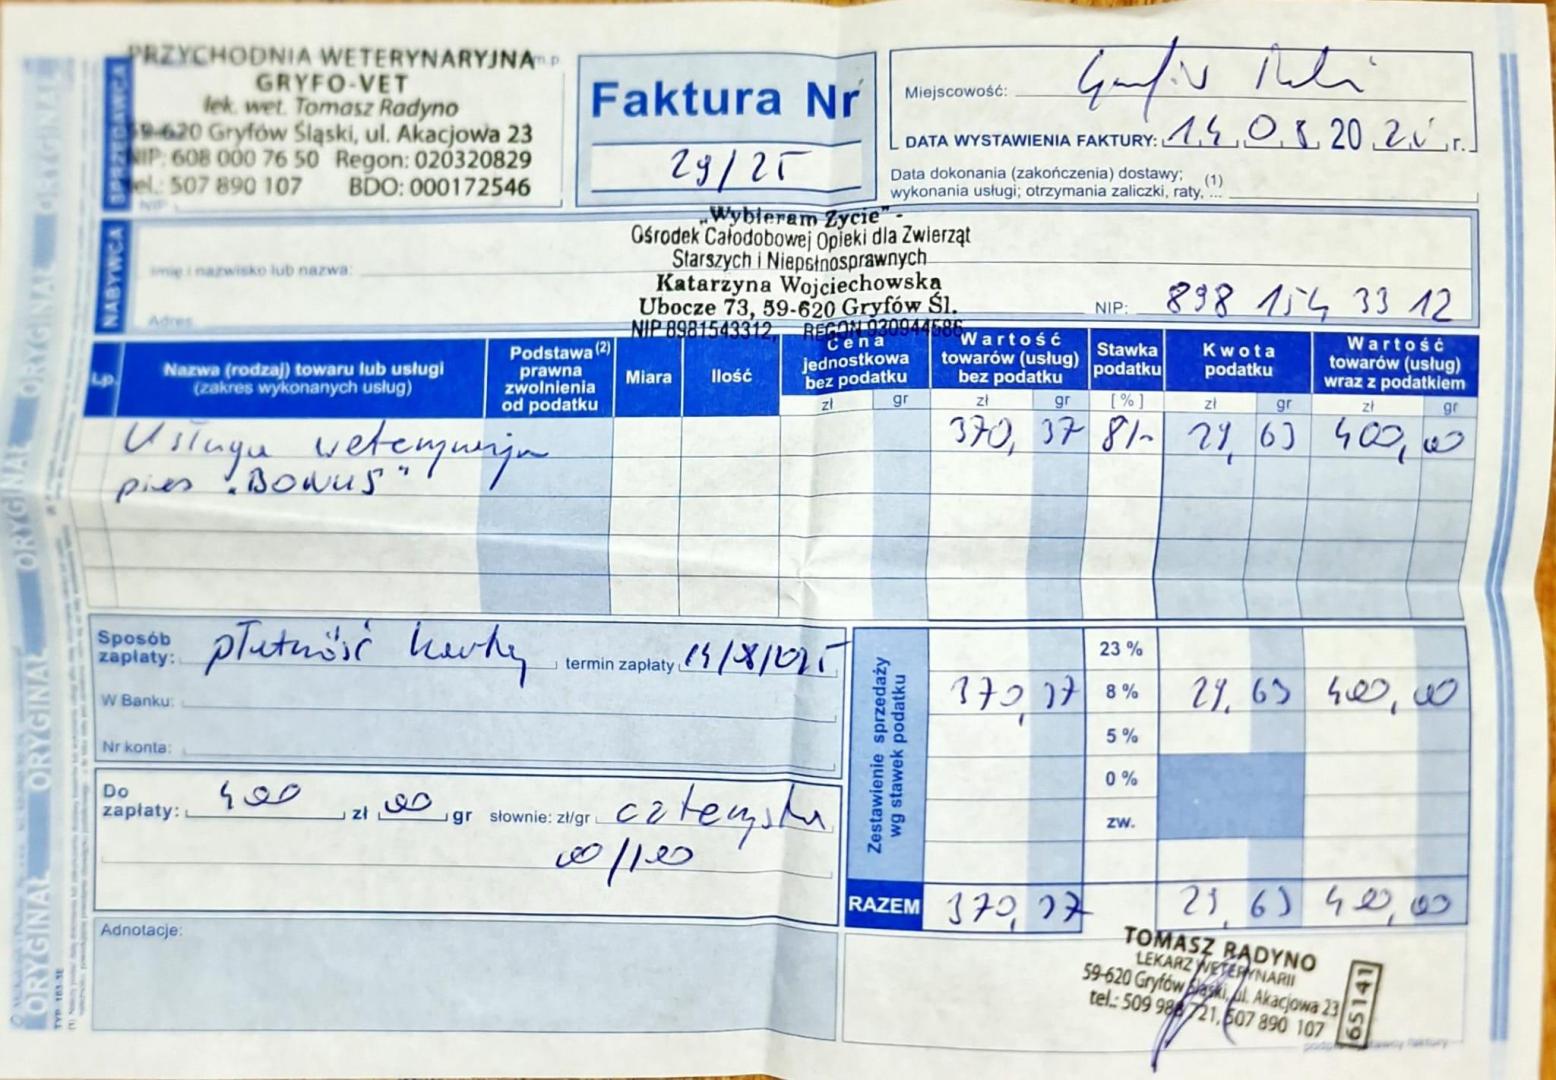 PRZYCHODNIA WETERYNARYJNA m.p.
GRYFO-VET
lek. wet. Tomasz Radyno
59-620 Gryfów Śląski, ul. Akacjowa 23
NIP: 608 000 76 50 Regon: 020320829
tel.: 507 890 107 BDO: 000172546
SPRZEDAWCA
NIP
Faktura Nr
29/25
Miejscowość: Gryfów
DATA WYSTAWIENIA FAKTURY: 14.08.2025 r.
Data dokonania (zakończenia) dostawy; (1)
wykonania usługi; otrzymania zaliczki, raty, ...
NABYWCA
„Wybieram Życie” -
Ośrodek Całodobowej Opieki dla Zwierząt
Starszych i Niepełnosprawnych
Imię i nazwisko lub nazwa:
Katarzyna Wojciechowska
Ubocze 73, 59-620 Gryfów Śl.
NIP: 898 154 33 12
Adres
NIP 8981543312, REGON 930944586
Lp.
Nazwa (rodzaj) towaru lub usługi
(zakres wykonanych usług)
Podstawa (2)
prawna
zwolnienia
od podatku
Miara
Ilość
Cena
jednostkowa
bez podatku
zł gr
Wartość
towarów (usług)
bez podatku
zł gr
Stawka
podatku
[%]
Kwota
podatku
zł gr
Wartość
towarów (usług)
wraz z podatkiem
zł gr
Usługa weterynaryjna 370,37 8% 29,63 400,00
pies „BONUS”
Sposób
zapłaty: płatność kartą termin zapłaty 14/8/2025
W Banku:
Nr konta:
Do
zapłaty: 400 zł 00 gr słownie: zł/gr czterysta
00/100
Adnotacje:
Zestawienie sprzedaży
wg stawek podatku
23 %
370,37 8 % 29,63 400,00
5 %
0 %
zw.
RAZEM 370,37 29,63 400,00
TOMASZ RADYNO
LEKARZ WETERYNARII
59-620 Gryfów Śląski, ul. Akacjowa 23
tel.: 509 988 721, 507 890 107
65141
podpis wystawcy faktury
ORYGINAŁ ORYGINAŁ ORYGINAŁ ORYGINAŁ ORYGINAŁ ORYGINAŁ